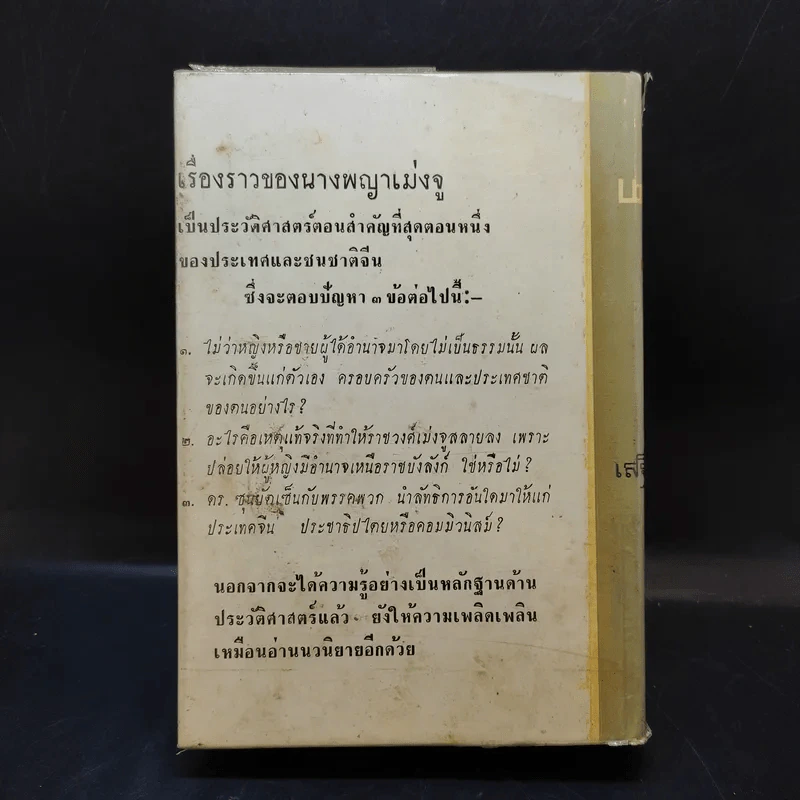 เรื่องราวของนางพญาเม่งจู
เป็นประวัติศาสตร์ตอนสำคัญที่สุดตอนหนึ่ง
ของประเทศและชนชาติจีน
ซึ่งจะตอบปัญหา ๓ ข้อต่อไปนี้:–
๑. ไม่ว่าหญิงหรือชายผู้ได้อำนาจมาโดยไม่เป็นธรรมนั้น ผล
จะเกิดขึ้นแก่ตัวเอง ครอบครัวของตนและประเทศชาติ
ของตนอย่างไร?
๒. อะไรคือเหตุแท้จริงที่ทำให้ราชวงค์เม่งจูสลายลง เพราะ
ปล่อยให้ผู้หญิงมีอำนาจเหนือราชบังลังก์ ใช่หรือไม่?
๓. ดร. ซุนยัดเซ็นกับพรรคพวก นำลัทธิการอันใดมาให้แก่
ประเทศจีน ประชาธิปไตยหรือคอมมิวนิสม์?
นอกจากจะได้ความรู้อย่างเป็นหลักฐานด้าน
ประวัติศาสตร์แล้ว ยังให้ความเพลิดเพลิน
เหมือนอ่านนวนิยายอีกด้วย